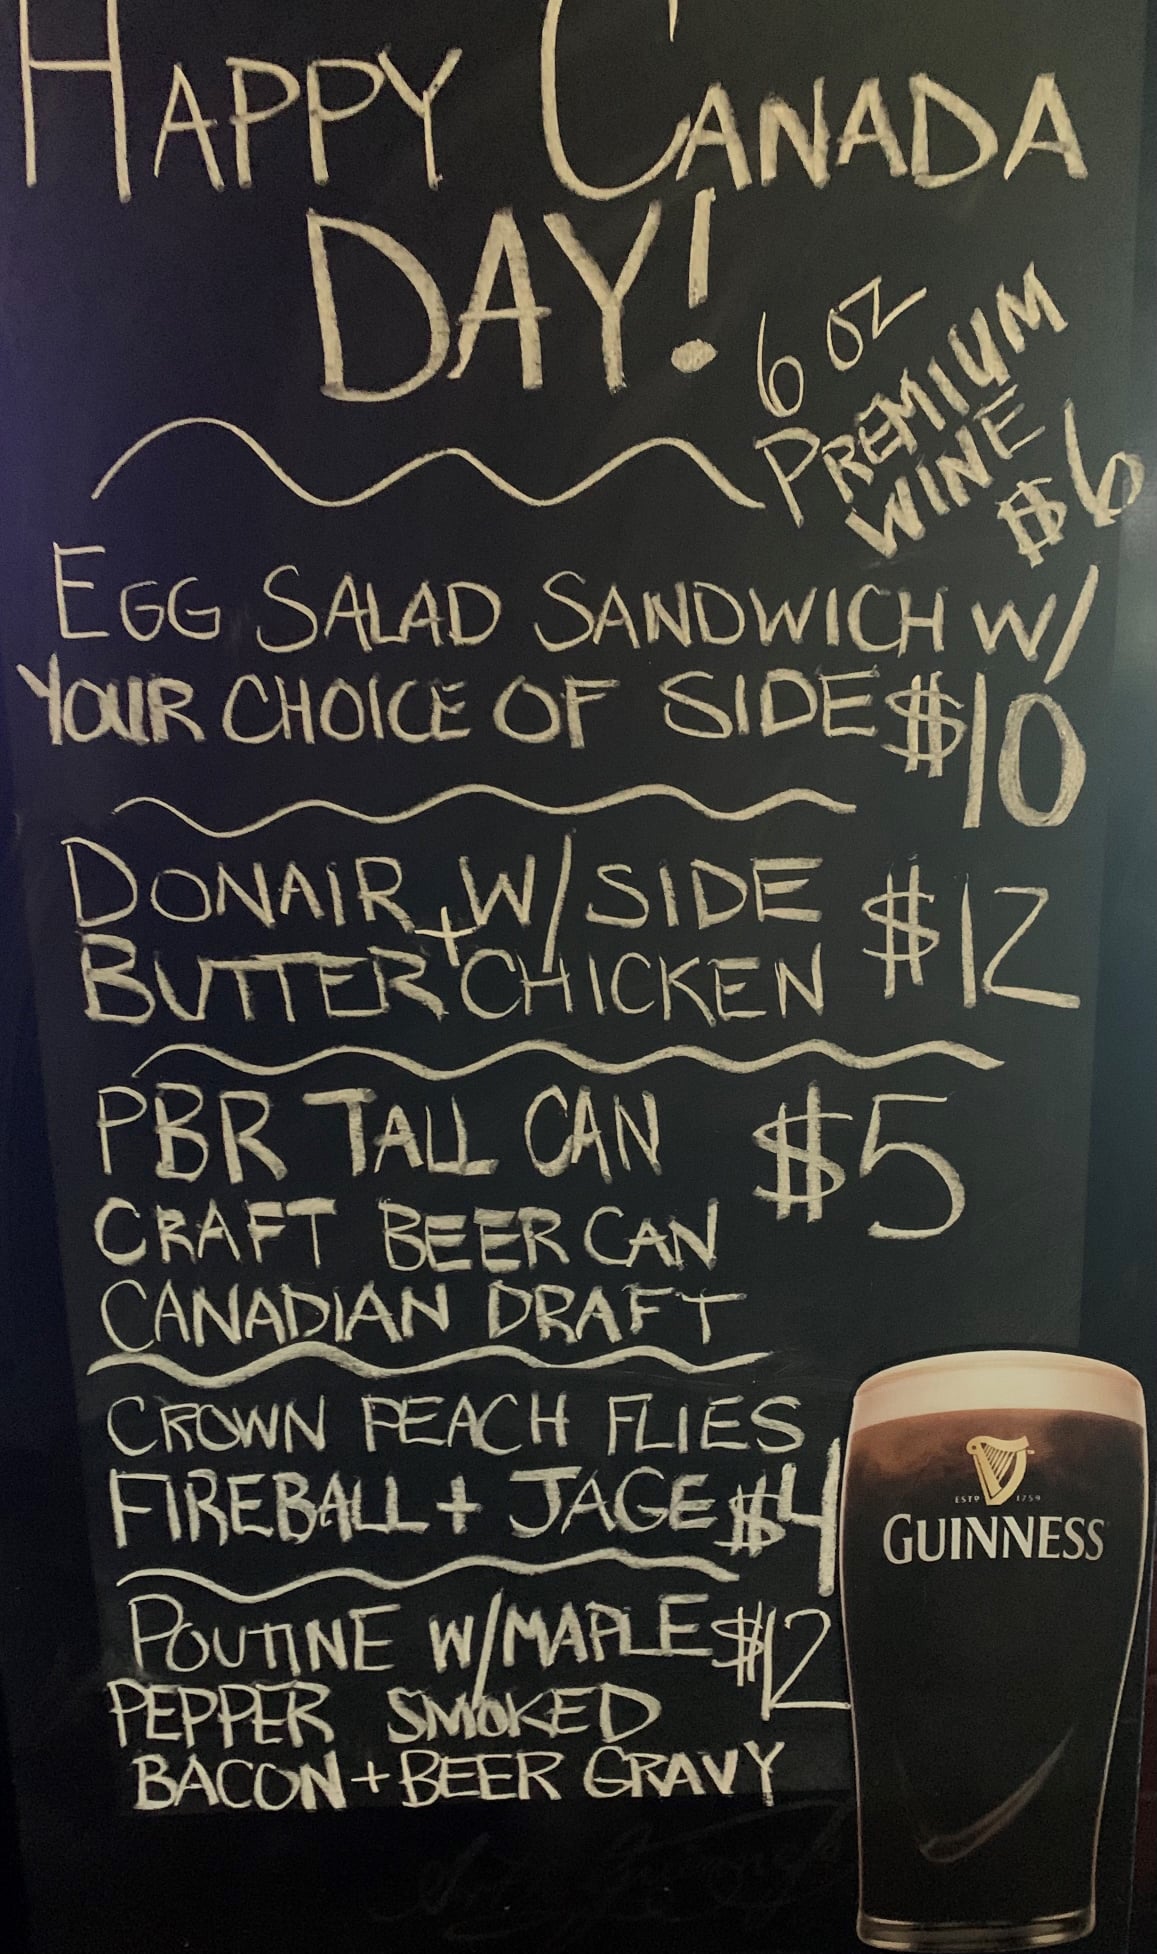 HAPPY CANADA
DAY!
6 oz
PREMIUM
WINE
$6
EGG SALAD SANDWICH W/
YOUR CHOICE OF SIDE $10
DONAIR W/ SIDE
+
BUTTER CHICKEN $12
PBR TALL CAN $5
CRAFT BEER CAN
CANADIAN DRAFT
CROWN PEACH FLIES
FIREBALL + JAGE $4
POUTINE W/MAPLE $12
PEPPER SMOKED
BACON + BEER GRAVY
ESTD 1759
GUINNESS